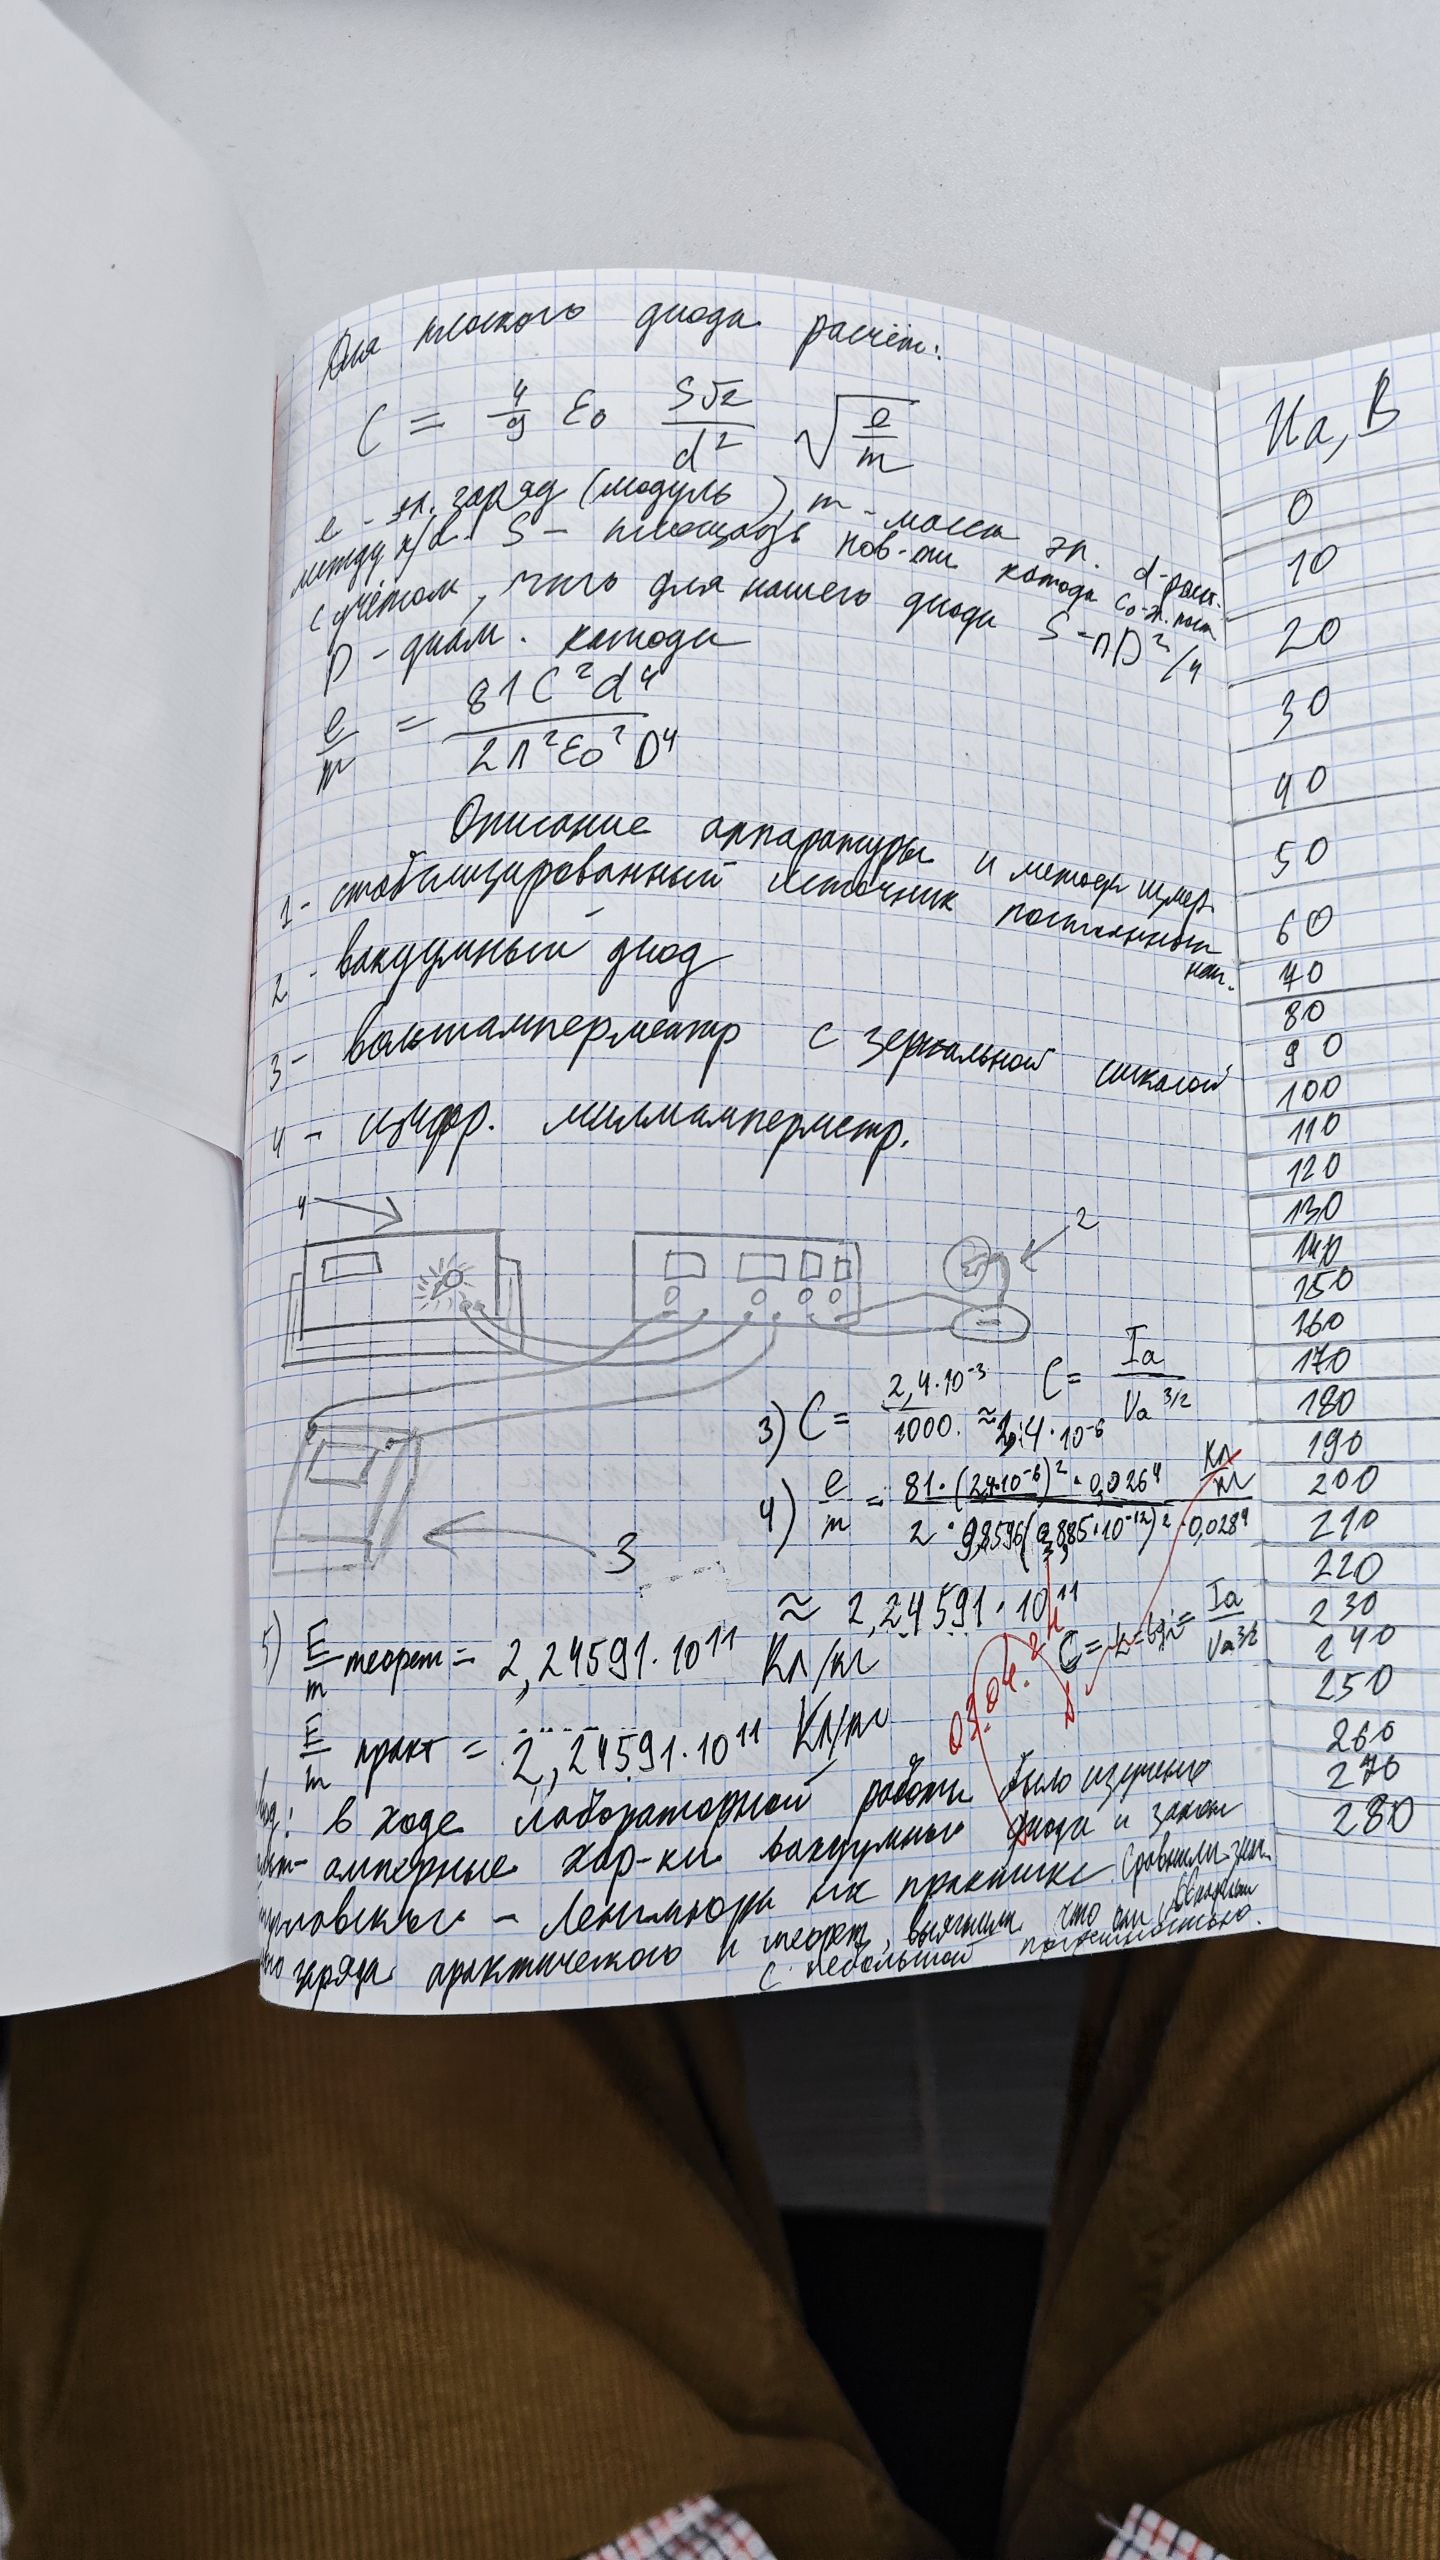 Для плоского диода расчёт:
C = 4/9 ε0 S√2/d² √e/m
e - эл. заряд (модуль), m - масса эл. d-расст.
между к/а. S - площадь пов-ти катода ε0-эл. пост
с учётом, что для нашего диода S=πD²/4
D - диам. катода
e/m = 81C²d⁴/2π²ε0²D⁴
Описание аппаратуры и метода измер.
1- стабилизированный источник постоянного
нап.
2 - вакуумный диод
3 - вольтамперметр с зеркальной шкалой
4 - цифр. миллиамперметр.
4
2
3
3) C = 2,4·10⁻³/1000 ≈ 2,4·10⁻⁶ C = Ia/Va^3/2
4) e/m = 81·(2,4·10⁻⁶)²·0,026⁴/2·9,8596(8,885·10⁻¹²)²·0,028⁴ Кл/кг
≈ 2,24591·10¹¹
C = k = tgα = Ia/Va^3/2
5) E/m теорет = 2,24591·10¹¹ Кл/кг
E/m практ = 2,24591·10¹¹ Кл/кг
03.04.24
в ходе лабораторной работы было изучено
амперные хар-ки вакуумного диода и закон
Ленгмюра на практике. Сравнили знач.
заряда практического и теорет, выяснили что они
с небольшой погрешностью.
Ua, В
0
10
20
30
40
50
60
70
80
90
100
110
120
130
140
150
160
170
180
190
200
210
220
230
240
250
260
270
280